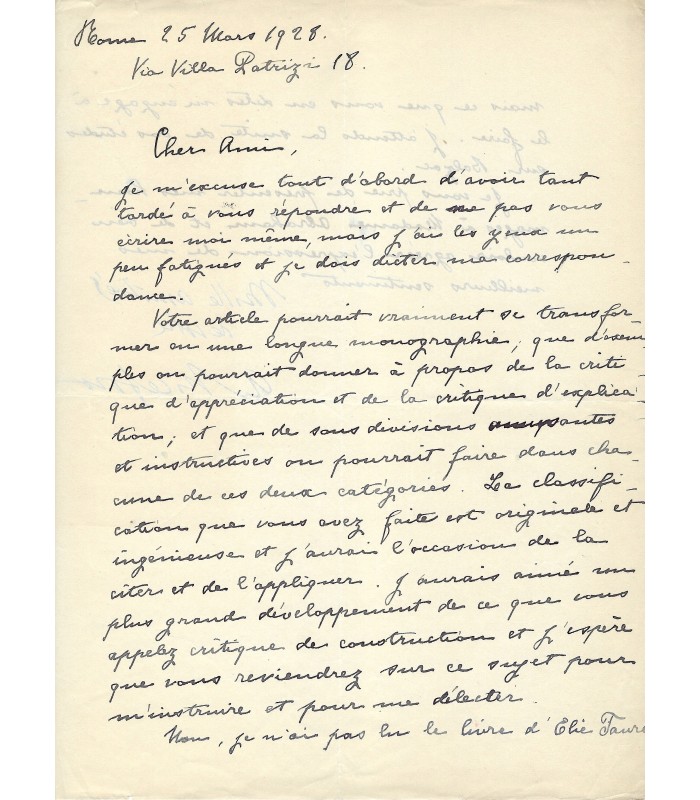 Rome 25 Mars 1928.
Via Villa Patrizi 18.
Cher Ami,
Je m'excuse tout d'abord d'avoir tant
tardé à vous répondre et de ne pas vous
écrire moi même, mais j'ai les yeux un
peu fatigués et je dois dicter ma correspon-
dance.
Votre article pourrait vraiment se transfor-
mer en une longue monographie; que d'exem-
ples on pourrait donner à propos de la criti-
que d'appréciation et de la critique d'explica-
tion; et que de sous divisions amusantes
et instructives on pourrait faire dans cha-
cune de ces deux catégories. La classifi-
cation que vous avez faite est originale et
ingénieuse et j'aurai l'occasion de la
citer et de l'appliquer. J'aurais aimé un
plus grand développement de ce que vous
appelez critique de construction et j'espère
que vous reviendrez sur ce sujet pour
m'instruire et pour me délecter.
Non, je n'ai pas lu le livre d'Elie Faure